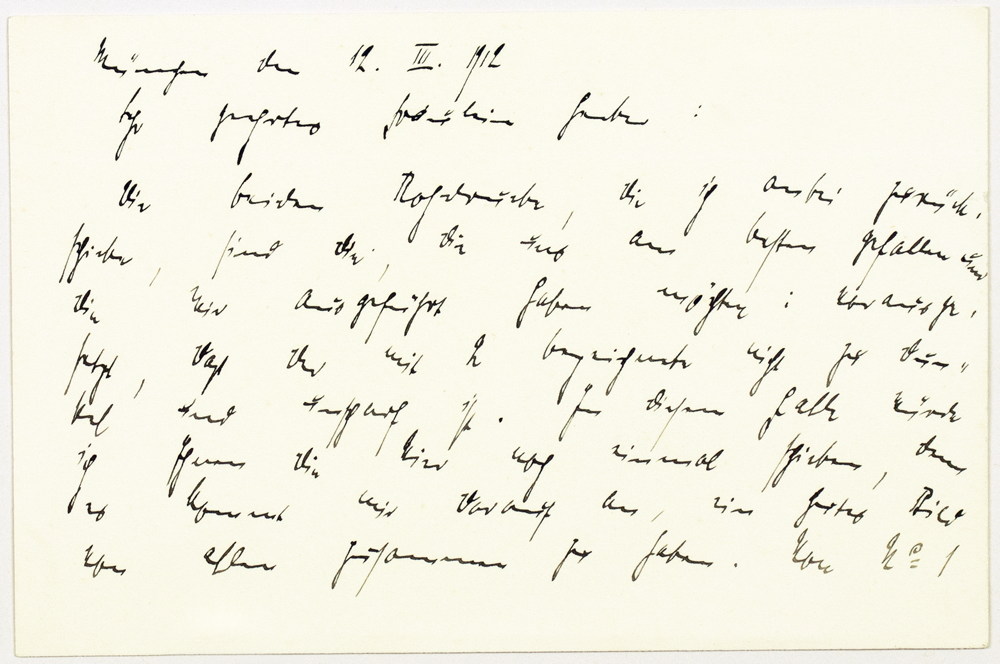 München den 12. III. 1912
Sehr geehrtes Fräulein :
Die beiden Rohdrucke, die ich anbei zurück-
schicke, sind die, die uns am besten gefallen und
die wir ausgeführt haben möchten : vorausge-
setzt, daß der mit 2 bezeichnete nicht zu dun-
kel und unscharf ist. In diesem Falle würde
ich Ihnen die hier noch einmal schicken, denn
es kommt mir darauf an, ein gutes Bild
von allen zusammen zu haben. Von No 1